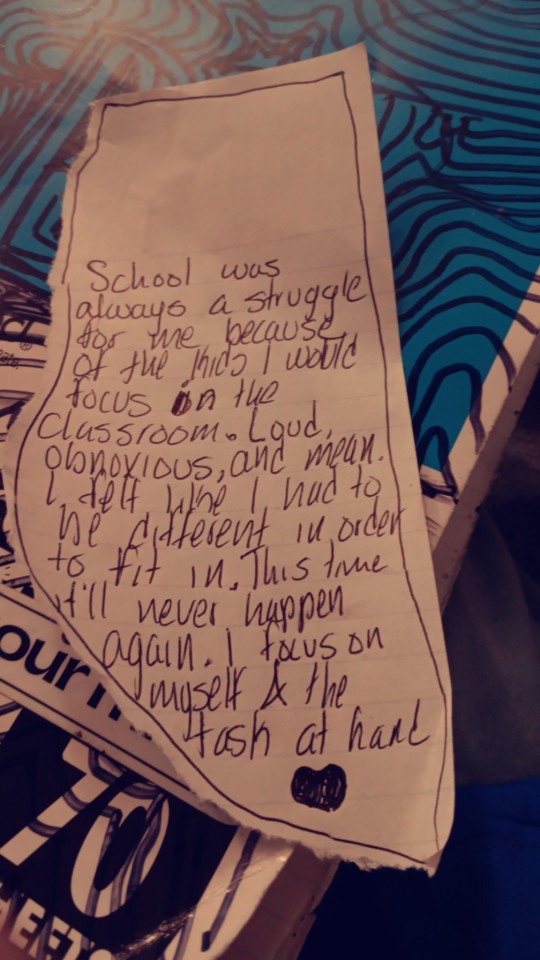 School was
always a struggle
for me because
of the kids I would
focus in the
classroom. Loud,
obnoxious, and mean.
I felt like I had to
be different in order
to fit in. This time
it'll never happen
again. I focus on
myself & the
task at hand
our
70